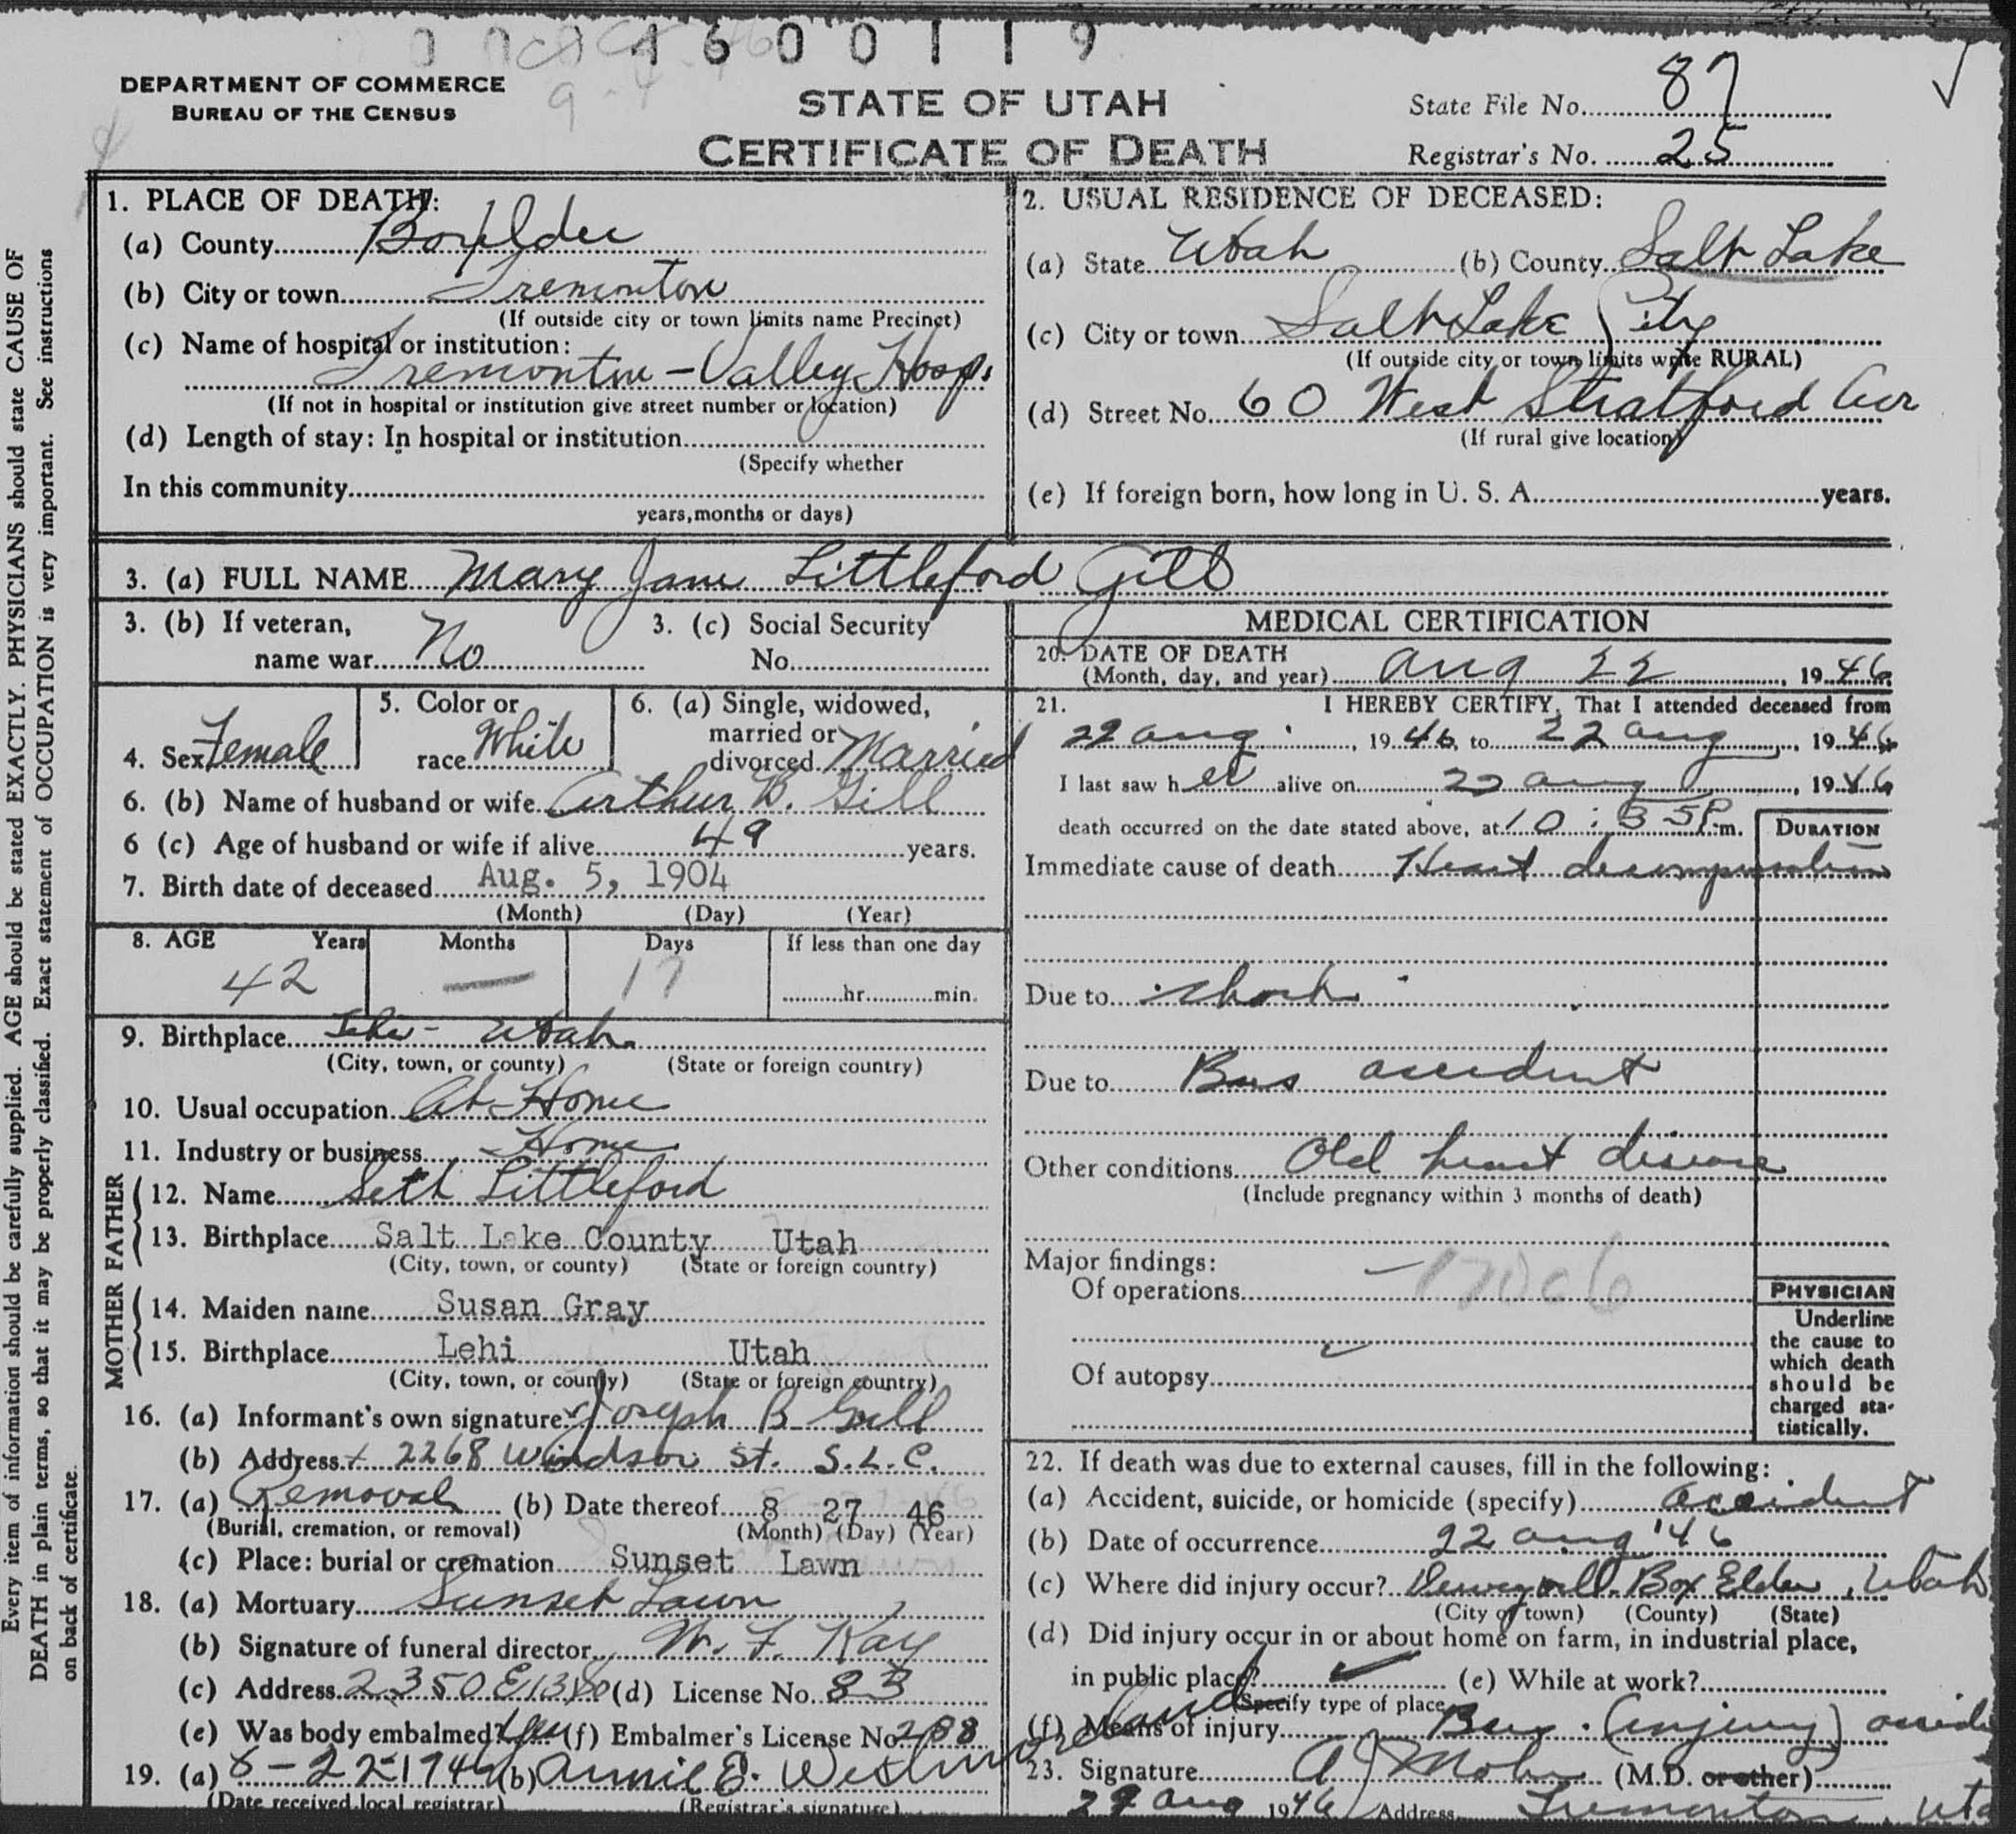 0 0 0 4 6 0 0 1 1 9
DEPARTMENT OF COMMERCE
BUREAU OF THE CENSUS
STATE OF UTAH
CERTIFICATE OF DEATH
State File No. 87
Registrar's No. 25
Every item of information should be carefully supplied. AGE should be stated EXACTLY. PHYSICIANS should state CAUSE OF
DEATH in plain terms, so that it may be properly classified. Exact statement of OCCUPATION is very important. See instructions
on back of certificate.
1. PLACE OF DEATH:
(a) County Boxelder
(b) City or town Tremonton
(If outside city or town limits name Precinct)
(c) Name of hospital or institution:
Tremonton - Valley Hosp.
(If not in hospital or institution give street number or location)
(d) Length of stay: In hospital or institution
(Specify whether
In this community
years, months or days)
2. USUAL RESIDENCE OF DECEASED:
(a) State Utah (b) County Salt Lake
(c) City or town Salt Lake City
(If outside city or town limits write RURAL)
(d) Street No. 60 West Stratford Ave
(If rural give location)
(e) If foreign born, how long in U. S. A. years.
3. (a) FULL NAME Mary Jane Littleford Gill
3. (b) If veteran,
name war No
3. (c) Social Security
No.
4. Sex Female
5. Color or
race White
6. (a) Single, widowed,
married or
divorced Married
6. (b) Name of husband or wife Arthur B. Gill
6 (c) Age of husband or wife if alive 49 years.
7. Birth date of deceased Aug. 5, 1904
(Month) (Day) (Year)
8. AGE Years Months Days If less than one day
42 — 17 hr. min.
9. Birthplace Lehi - Utah
(City, town, or county) (State or foreign country)
10. Usual occupation At Home
11. Industry or business Home
FATHER
12. Name Seth Littleford
13. Birthplace Salt Lake County Utah
(City, town, or county) (State or foreign country)
MOTHER
14. Maiden name Susan Gray
15. Birthplace Lehi Utah
(City, town, or county) (State or foreign country)
16. (a) Informant's own signature Joseph B Gill
(b) Address 2268 Windsor St. S.L.C.
17. (a) Removal (b) Date thereof 8 27 46
(Burial, cremation, or removal) (Month) (Day) (Year)
(c) Place: burial or cremation Sunset Lawn
18. (a) Mortuary Sunset Lawn
(b) Signature of funeral director W. F. Kay
(c) Address 2350 E 13 (d) License No. 83
(e) Was body embalmed? Yes (f) Embalmer's License No. 288
19. (a) 8-22-1946 (b) Annie E. Westmoreland
(Date received local registrar) (Registrar's signature)
MEDICAL CERTIFICATION
20. DATE OF DEATH
(Month, day, and year) Aug 22, 1946
21. I HEREBY CERTIFY, That I attended deceased from
22 Aug, 1946, to 22 Aug, 1946
I last saw her alive on 22 Aug, 1946
death occurred on the date stated above, at 10:35 P. m.
DURATION
Immediate cause of death Heart decompensation
Due to shock
Due to Bus accident
Other conditions Old heart disease
(Include pregnancy within 3 months of death)
Major findings:
Of operations
Of autopsy
PHYSICIAN
Underline
the cause to
which death
should be
charged sta-
tistically.
22. If death was due to external causes, fill in the following:
(a) Accident, suicide, or homicide (specify) accident
(b) Date of occurrence 22 Aug '46
(c) Where did injury occur? Deweyville Box Elder, Utah
(City or town) (County) (State)
(d) Did injury occur in or about home on farm, in industrial place,
in public place? ✓ (e) While at work?
(Specify type of place
(f) Means of injury Bus (injury)
23. Signature (M.D. or other)
29 Aug 1946 Address Tremonton, Uta